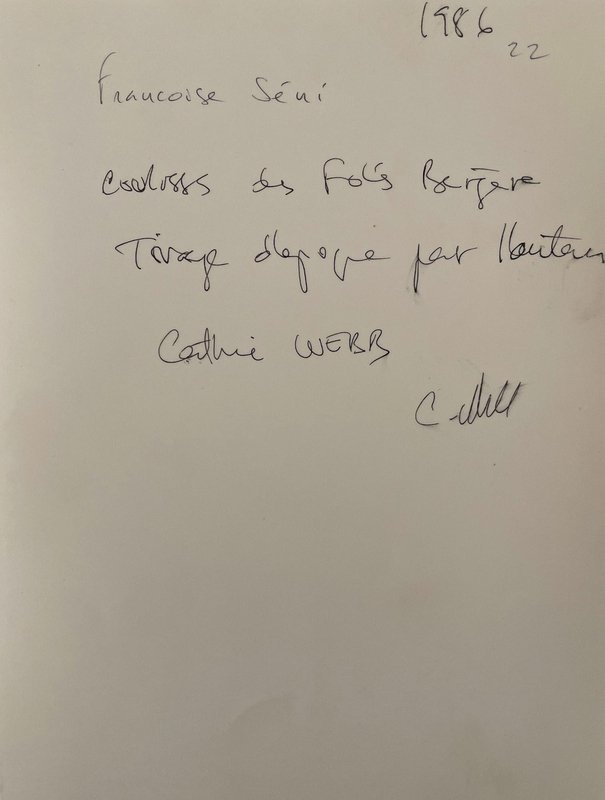 1986
22
Francoise Séni
coulisses des Folies Bergère
Tirage d'époque par l'auteur
Cathie WEBB